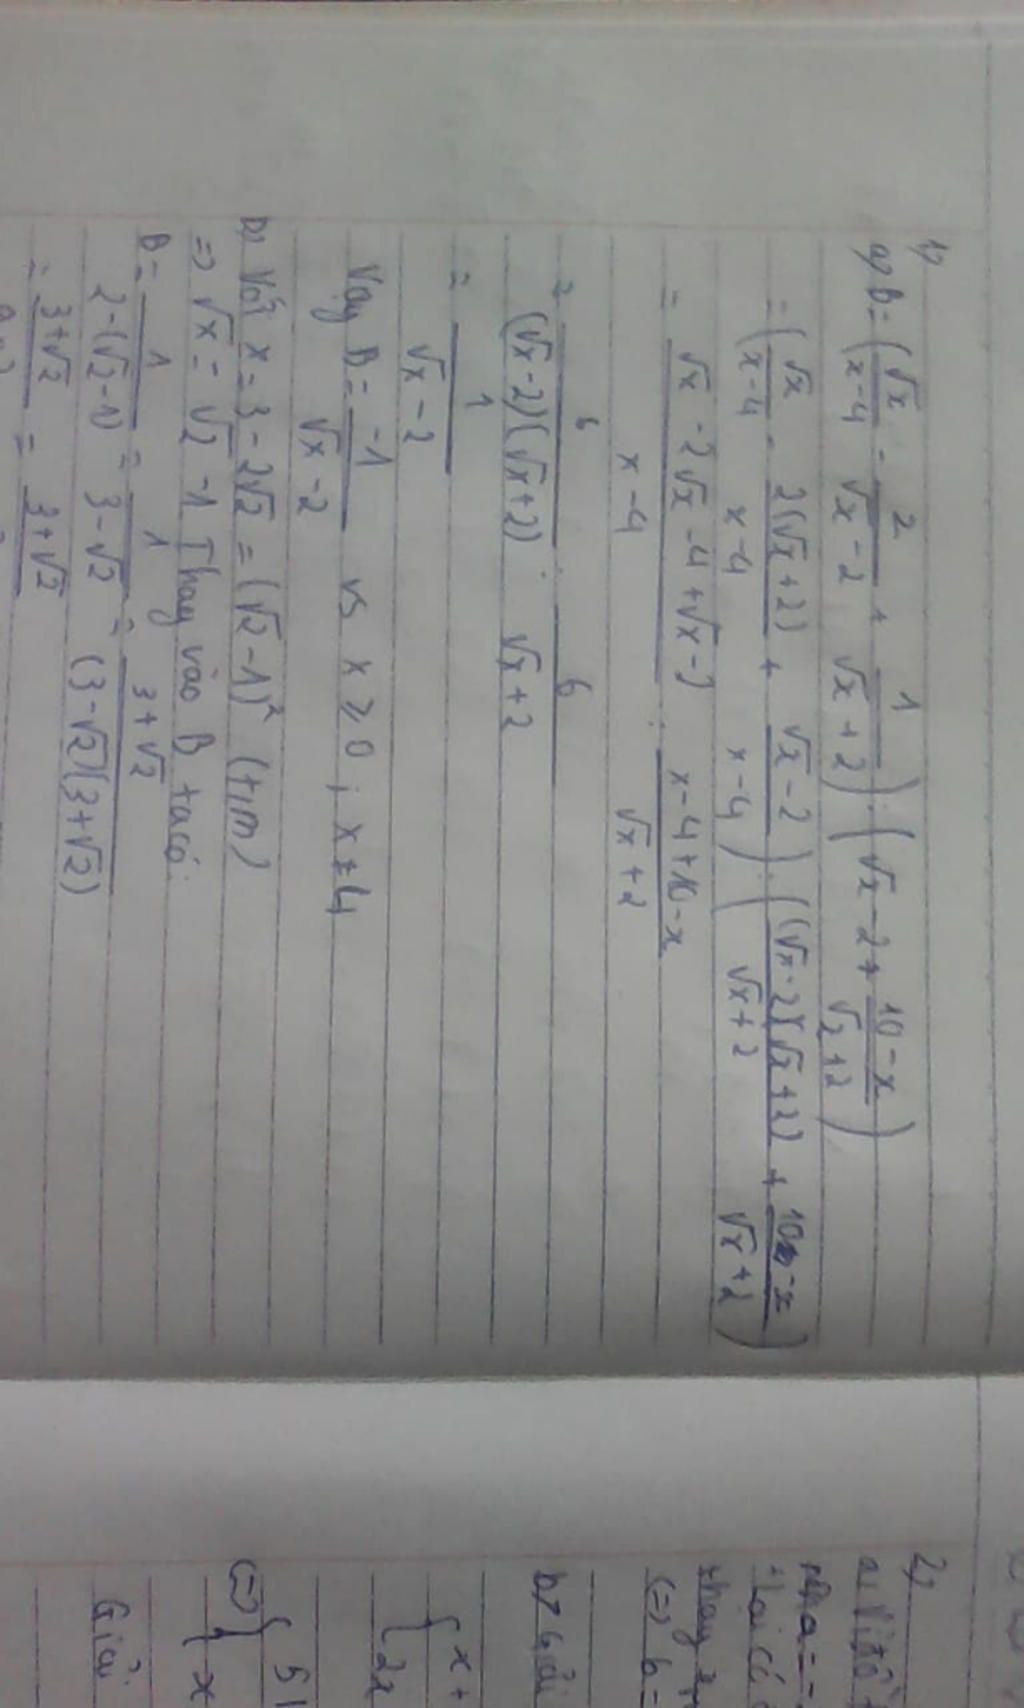 1)
a) B = (√x/(x-4) - 2/(√x-2) + 1/(√x+2)) : (√x-2 + (10-x)/(√x+2))
= (√x/(x-4) - 2(√x+2)/(x-4) + (√x-2)/(x-4)) : ((√x-2)(√x+2)/(√x+2) + (10-x)/(√x+2))
= (√x - 2√x - 4 + √x - 2)/(x-4) : (x-4+10-x)/(√x+2)
= 6/((√x-2)(√x+2)) : 6/(√x+2)
= 1/(√x-2)
Vậy B = -1/(√x-2) vs x ≥ 0 ; x ≠ 4
b) Với x = 3 - 2√2 = (√2-1)² (tm)
=> √x = √2 - 1 Thay vào B ta có:
B = 1/(2-(√2-1)) = 1/(3-√2) = (3+√2)/((3-√2)(3+√2))
= (3+√2) = (3+√2)
2)
a)
Lại có
thay
(=) b =
b) Giải
{ x +
{ 2x
(=) { 5
{ x
Giải